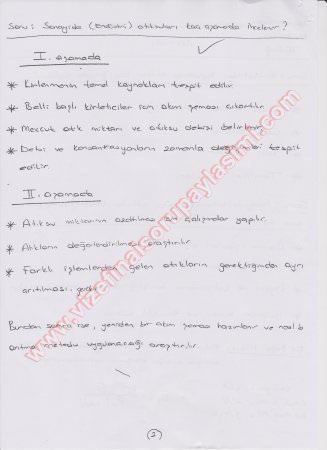 Soru: Sanayide (Endüstri) atıksuları kaç aşamada incelenir?
I. aşamada
* Kirlenmenin temel kaynakları tespit edilir.
* Belli başlı kirleticiler için akım şeması çıkartılır.
* Mevcut atık miktarı ve atıksu debisi belirlenir.
* Debi ve konsantrasyonların zamanla değişimleri tespit
edilir.
II. aşamada
* Atıksu miktarının azaltılması için çalışmalar yapılır.
* Atıkların değerlendirilmesi araştırılır.
* Farklı işlemlerden gelen atıkların gerektiğinde ayrı
arıtılması
Bundan sonra ise, yeniden bir akım şeması hazırlanır ve nasıl b
arıtma metodu uygulanacağı araştırılır.
(2)
www.vizefinalsorupaylasimi.com